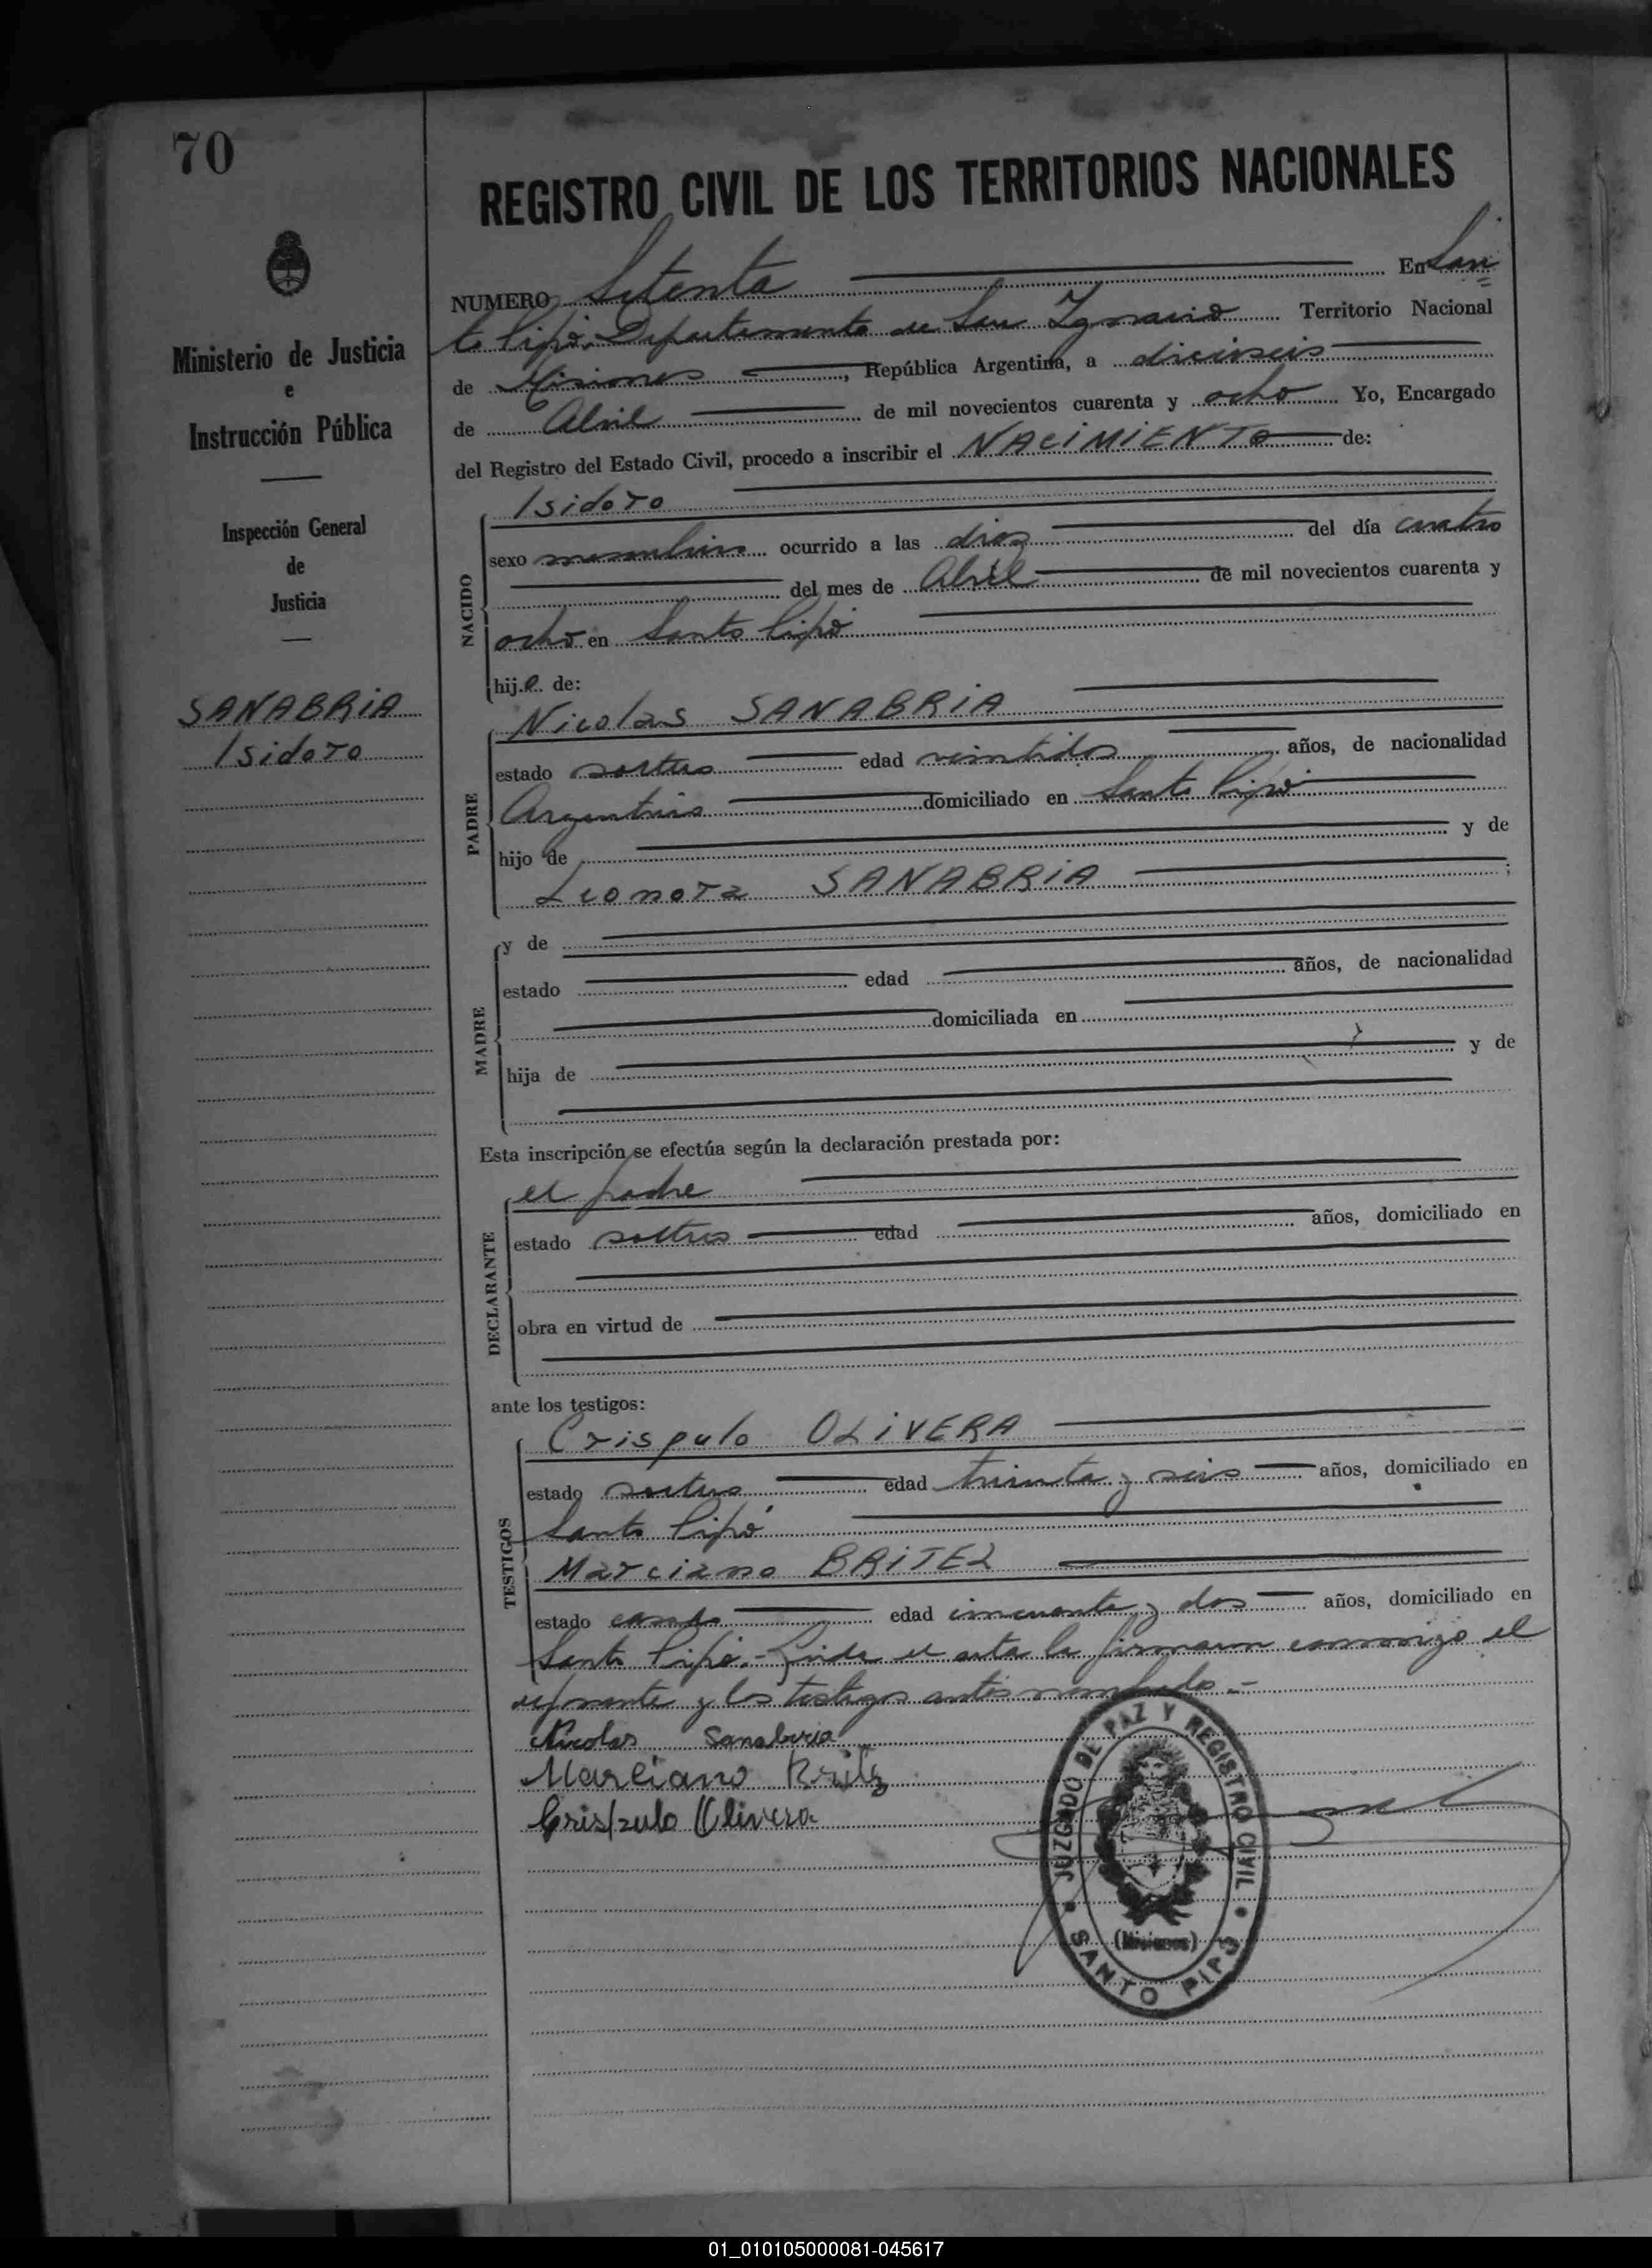 70
REGISTRO CIVIL DE LOS TERRITORIOS NACIONALES
NUMERO Setenta En San
to Pipó Departamento de San Ignacio Territorio Nacional
de Misiones, República Argentina, a dieciseis
de Abril de mil novecientos cuarenta y ocho Yo, Encargado
del Registro del Estado Civil, procedo a inscribir el NACIMIENTO de:
Ministerio de Justicia
e
Instrucción Pública
Inspección General
de
Justicia
SANABRIA
Isidoro
NACIDO
Isidoro
sexo masculino ocurrido a las diez del día cuatro
del mes de Abril de mil novecientos cuarenta y
ocho en Santo Pipó
hijo de:
PADRE
Nicolas SANABRIA
estado soltero edad veintidos años, de nacionalidad
Argentino domiciliado en Santo Pipó
hijo de y de
Leonora SANABRIA ;
MADRE
y de
estado edad años, de nacionalidad
domiciliada en
hija de y de
Esta inscripción se efectúa según la declaración prestada por:
DECLARANTE
el padre
estado soltero edad años, domiciliado en
obra en virtud de
ante los testigos:
TESTIGOS
Crispulo OLIVERA
estado soltero edad treinta y seis años, domiciliado en
Santo Pipó
Marciano BRITEZ
estado casado edad cincuenta y dos años, domiciliado en
Santo Pipó.- Leida el acta la firmaron conmigo el
exponente y los testigos antes nombrados.-
Nicolas Sanabria
Marciano Britz
Crispulo Olivera
JUZGADO DE PAZ Y REGISTRO CIVIL
(Misiones)
SANTO PIPÓ
01_010105000081-045617